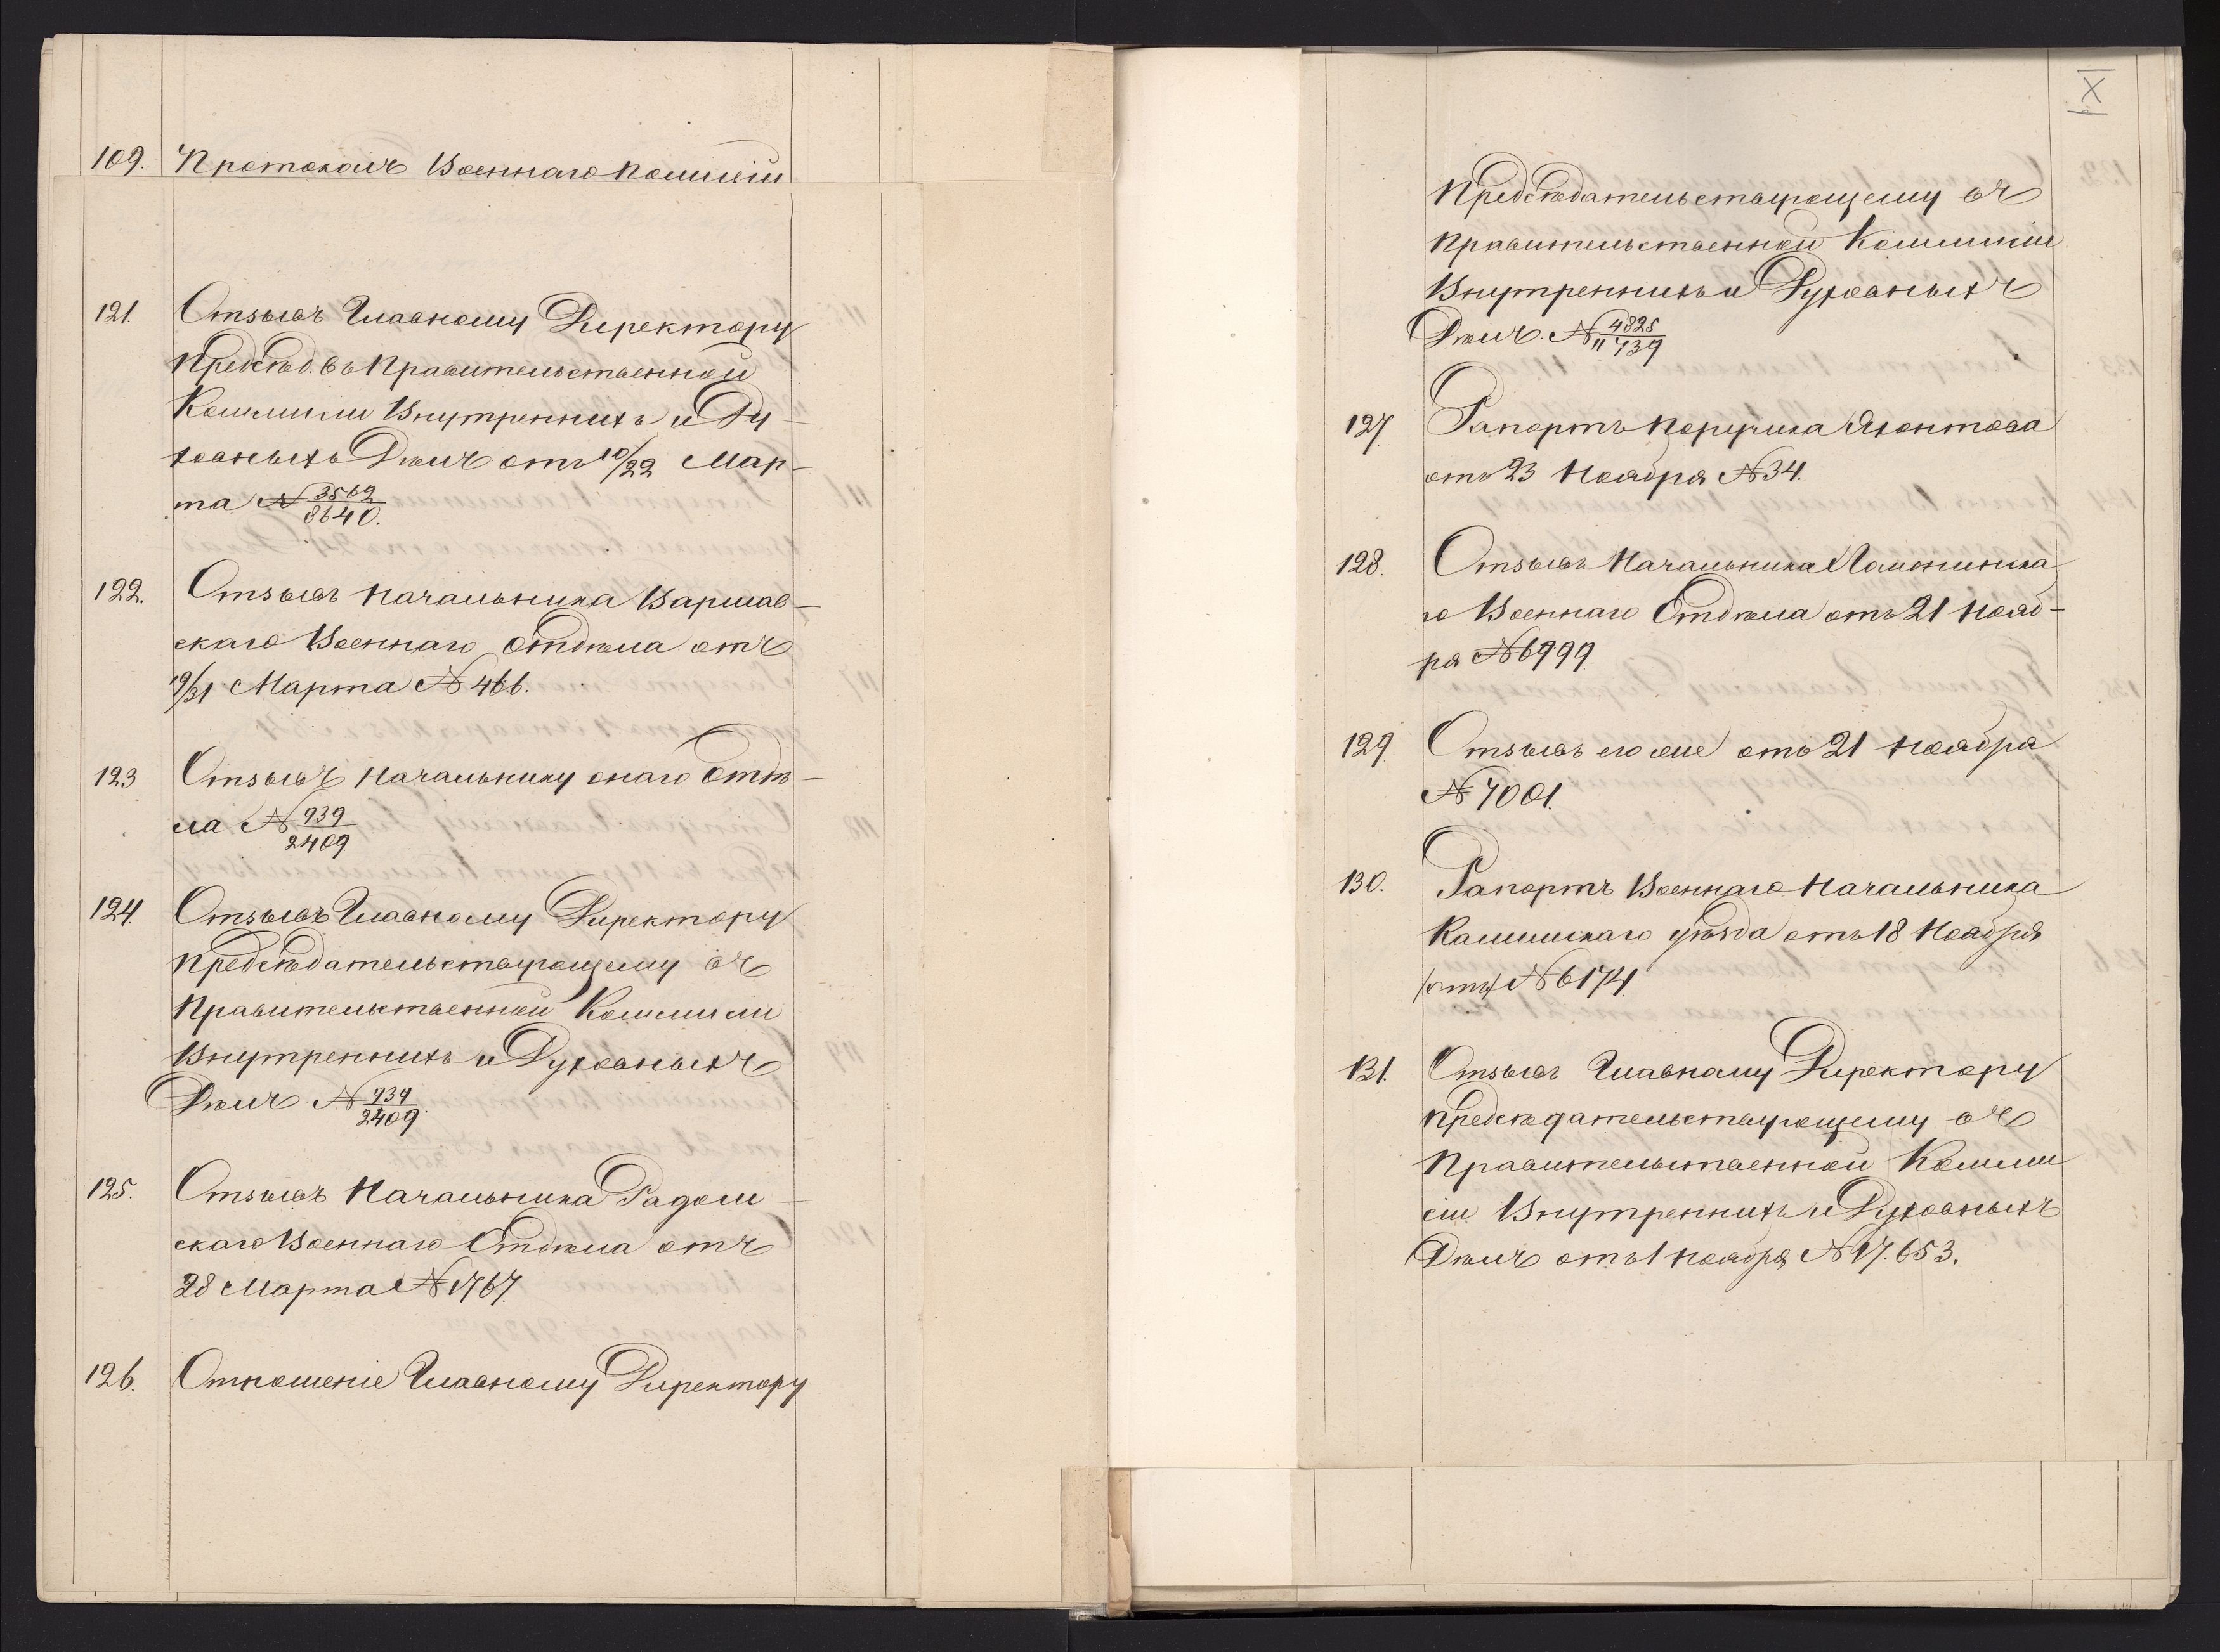 109. Протоколъ Военнаго Коммисіи
121. Отзывъ Главному Директору
Предсѣд. въ Правительственной
Коммисіи Внутреннихъ и Ду-
ховныхъ Дѣлъ отъ 10/22 Мар-
та № 3569/8640.
122. Отзывъ Начальника Варшав-
скаго Военнаго Отдѣла отъ
19/31 Марта № 466.
123 Отзывъ Начальнику онаго Отдѣ-
ла № 939/2409
124. Отзывъ Главному Директору
Предсѣдательствующему въ
Правительственной Коммисіи
Внутреннихъ и Духовныхъ
Дѣлъ № 939/2409.
125. Отзывъ Начальника Радом-
скаго Военнаго Отдѣла отъ
28 Марта № 1767.
126. Отношеніе Главному Директору
X
Предсѣдательствующему въ
Правительственной Коммисіи
Внутреннихъ и Духовныхъ
Дѣлъ. № 4825/11739
127 Рапортъ Поручика Яхонтова
отъ 23 Ноября № 34.
128. Отзывъ Начальника
го Военнаго Отдѣла отъ 21 Нояб-
ря № 6999.
129 Отзывъ его же отъ 21 Ноября
№ 7001.
130. Рапортъ Военнаго Начальника
Калишскаго уѣзда отъ 18 Ноября
№ 6174.
131. Отзывъ Главному Директору
Предсѣдательствующему въ
Правительственной Комми
сіи Внутреннихъ и Духовныхъ
Дѣлъ отъ 1 Ноября № 17.653.